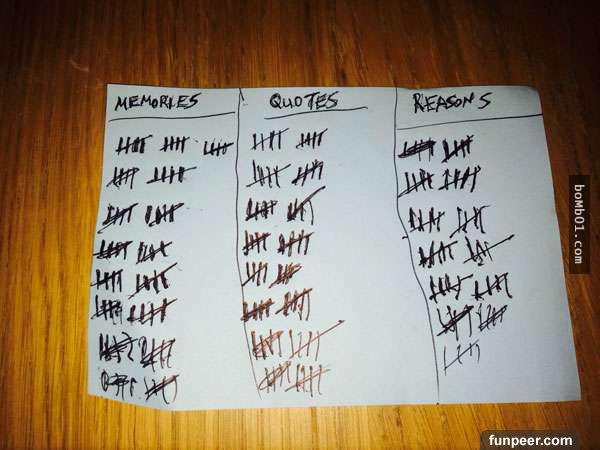 MEMORIES
QUOTES
REASONS
bomb01.com
funpeer.com